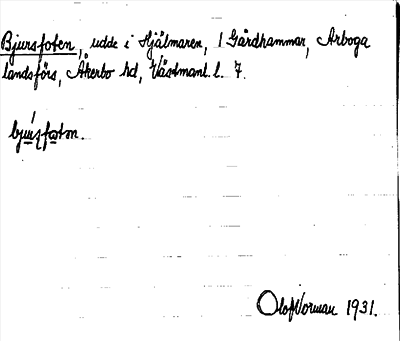 Bjursfoten, udde i Hjälmaren, 1 Gårdhammar, Arboga
landsförs, Åkerbo hd, Västmanl. l. 7.
bjúsfωtən.
Olof Norman 1931.